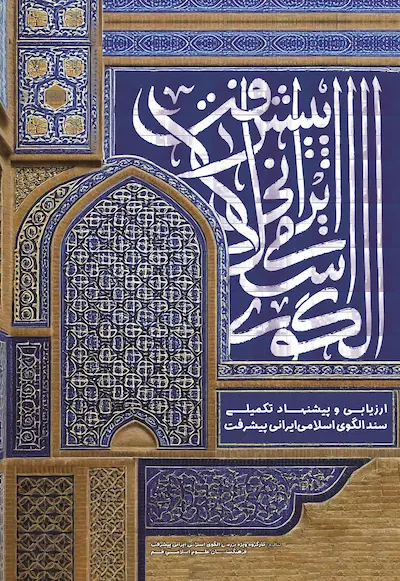 الگوی اسلامی ایرانی پیشرفت
ارزیابی و پیشنهاد تکمیلی
سند الگوی اسلامی ایرانی پیشرفت
کارگروه ویژه بررسی الگوی اسلامی ایرانی پیشرفت
فرهنگستان علوم اسلامی قم